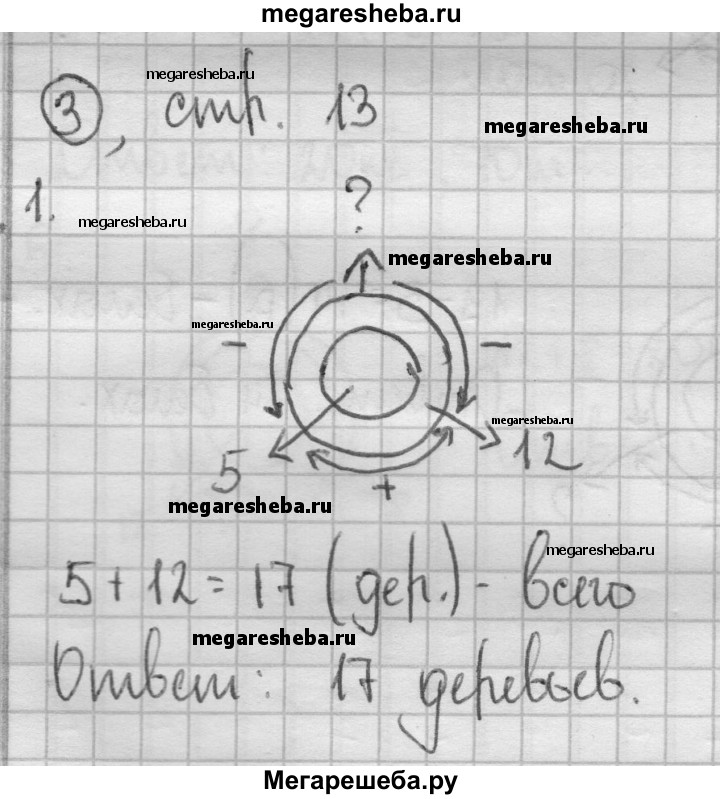 megaresheba.ru
megaresheba.ru
3, стр. 13
megaresheba.ru
1.
megaresheba.ru
?
megaresheba.ru
megaresheba.ru
- -
megaresheba.ru
5 12
megaresheba.ru
+
megaresheba.ru
5 + 12 = 17 (дер.) - всего
megaresheba.ru
Ответ: 17 деревьев.
Мегарешеба.ру